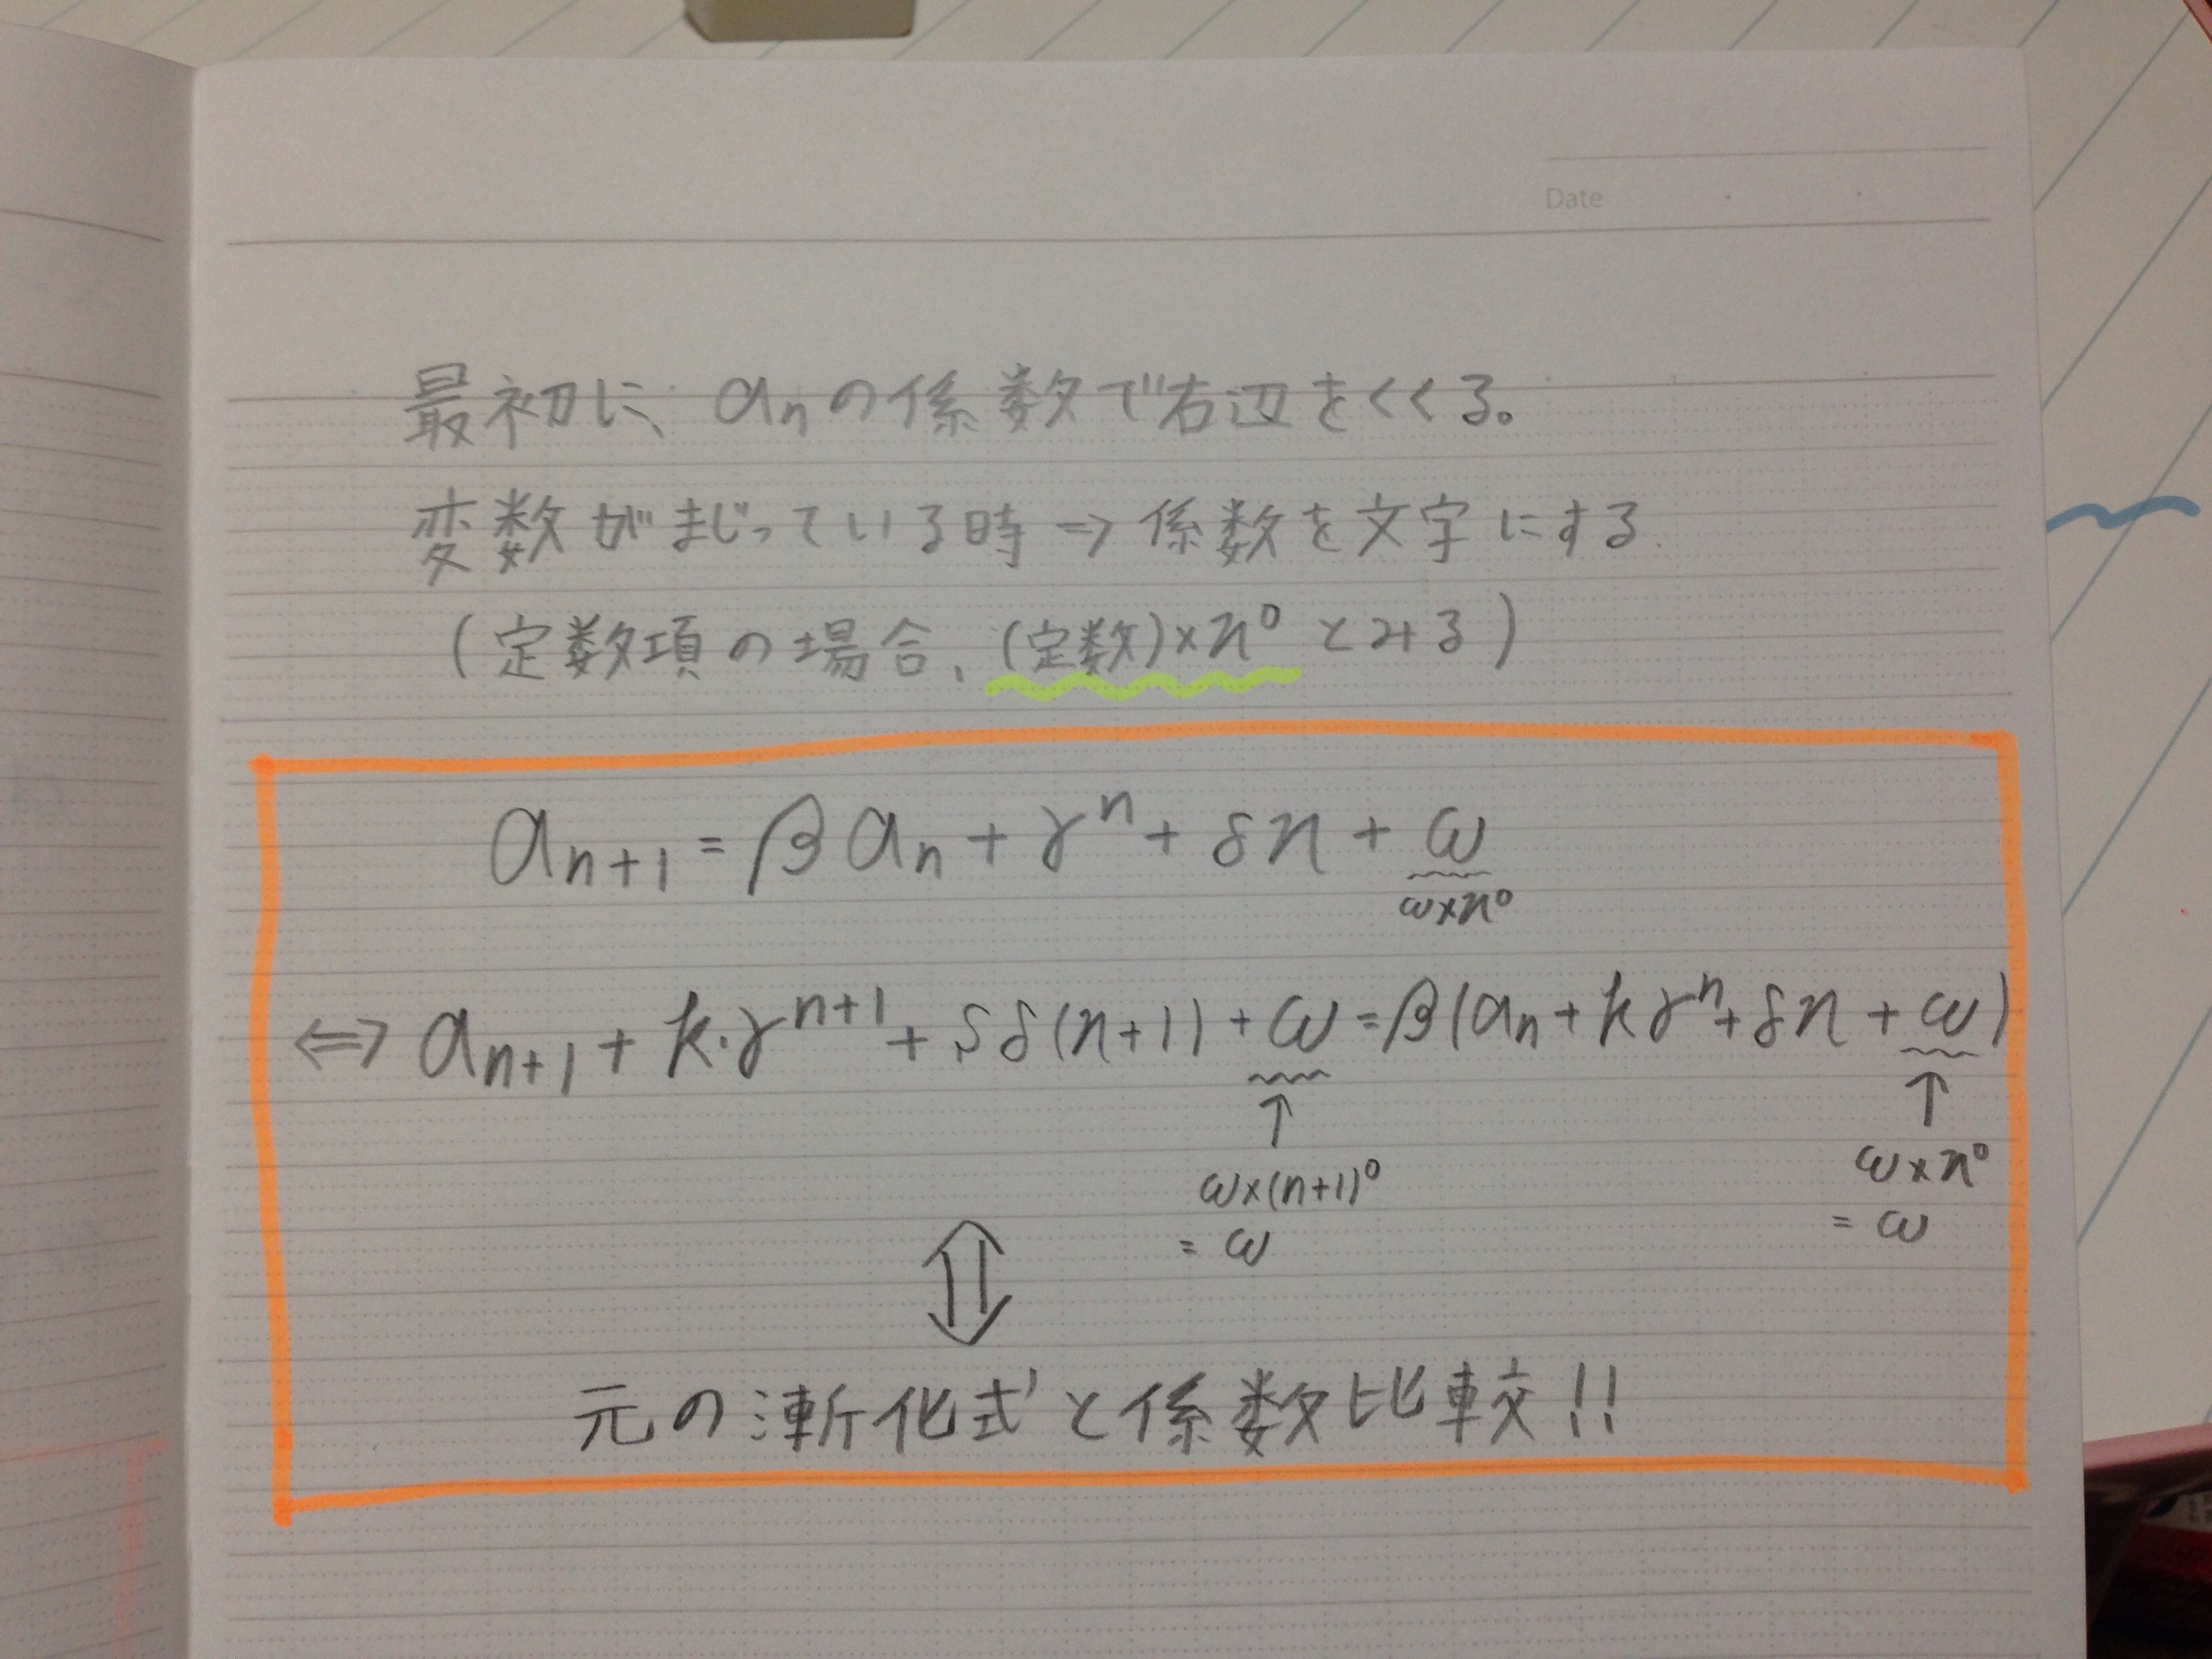 Date
最初に、anの係数で右辺をくくる。
変数がまじっている時 ⇒ 係数を文字にする.
(定数項の場合、(定数)×n⁰ とみる)
aₙ₊₁ = βaₙ + γⁿ + δn + ω
ω×n⁰
⇔ aₙ₊₁ + k·γⁿ⁺¹ + δδ(n+1) + ω = β(aₙ + kγⁿ + δn + ω)
↑ ↑
ω×(n+1)⁰ ω×n⁰
= ω = ω
⇕
元の漸化式と係数比較!!